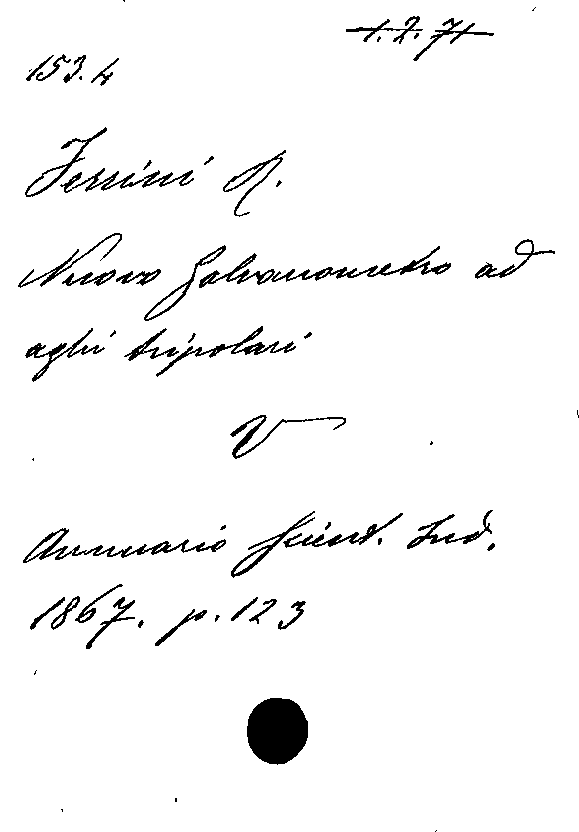 1.2.71
153.4
Ferrini R.
Nuovo Galvanometro ad
aghi tripolari
V
Annuario Scient. Ind.
1867. p. 123